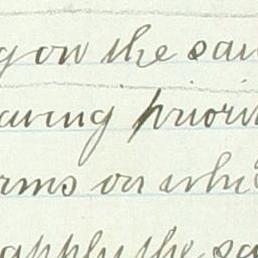 gow the sai
aving priori
rms on whi
apply the sa